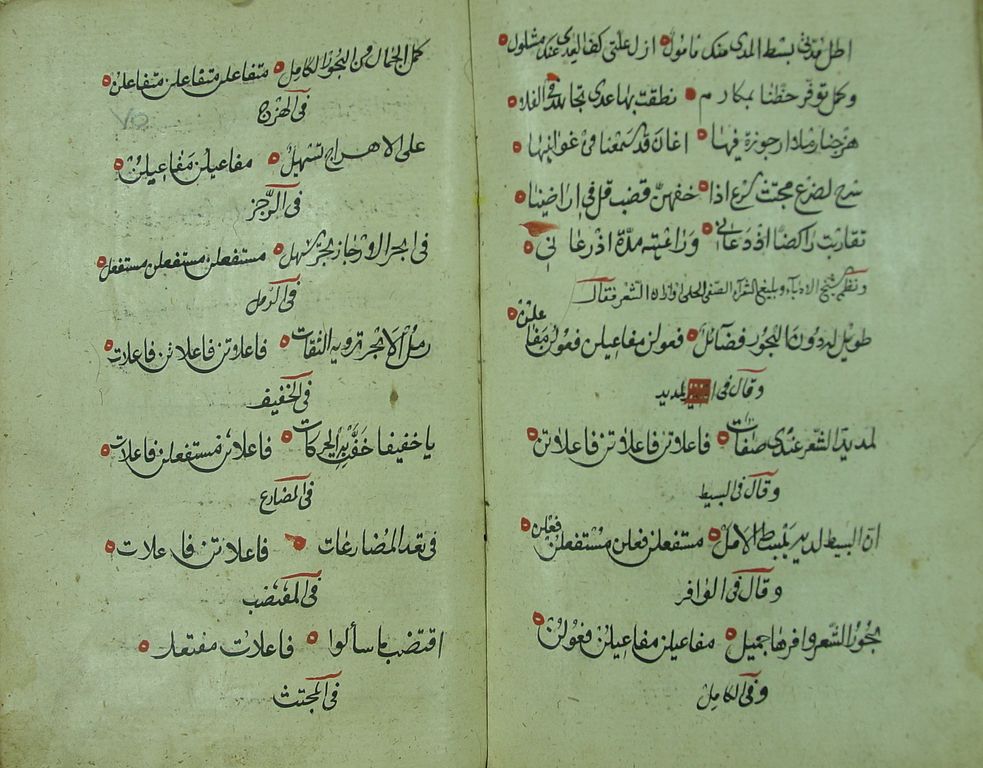 اطل مدتي بسط المدى منك نامول ازل علتي كف العدى عنك مشلول
وكمل توفر حظنا بمكارم نطقت بها عدى تجاهد في الفلا
هزجنا رملا دارجوزة فيها اغان قد سمعنا في غوانيها
سرح لضرع مجتث كرع اذا خفهن قضب قل في اراضينا
تقاربت راكضا اذ دعاني وراعيته مدة اذ رعاني
ونظم شيخ الادباء وبليغ الشعراء الصفي الحلي اوزان الشعر فقال
طويل له دون البحور فضائل فعولن مفاعيلن فعولن مفاعلن
وقال في المديد
لمديد الشعر عندي صفات فاعلاتن فاعلاتن فاعلاتن
وقال في البسيط
ان البسيط لديه يبسط الامل مستفعلن فعلن مستفعلن فعلن
وقال في الوافر
بحور الشعر وافرها جميل مفاعيلن مفاعيلن فعولن
وفي الكامل
كمل الجمال من البحور الكامل متفاعلن متفاعلن متفاعلن
في الهزج
على الاهراج تسهيل مفاعيلن مفاعيلن
في الرجز
في ابحر الارجاز بحر يسهل مستفعلن مستفعلن مستفعل
في الرمل
رمل الابحر ترويه الثقات فاعلاتن فاعلاتن فاعلات
في الخفيف
يا خفيفا خفت به الحركات فاعلاتن مستفعلن فاعلات
في المضارع
تعد المضارعات فاعلاتن فاعلات
في المقتضب
اقتضب ما سألوا فاعلات مفتعل
في المجتث